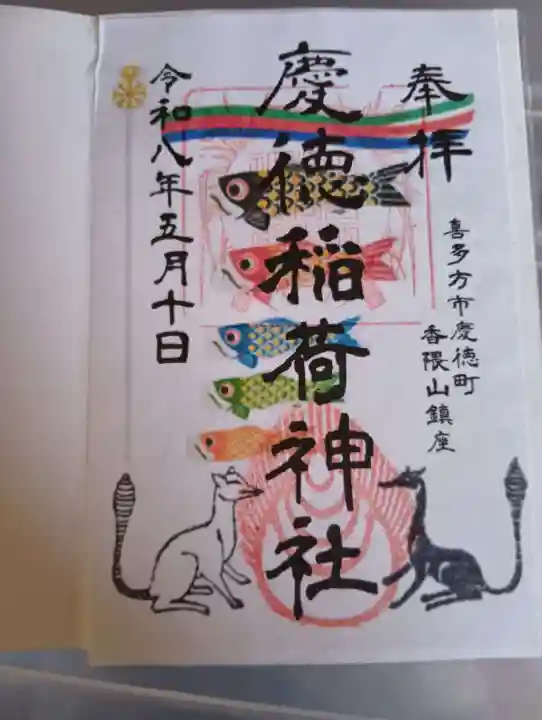 奉拝
喜多方市慶徳町
香隈山鎮座
慶徳稲荷神社
令和八年五月十日